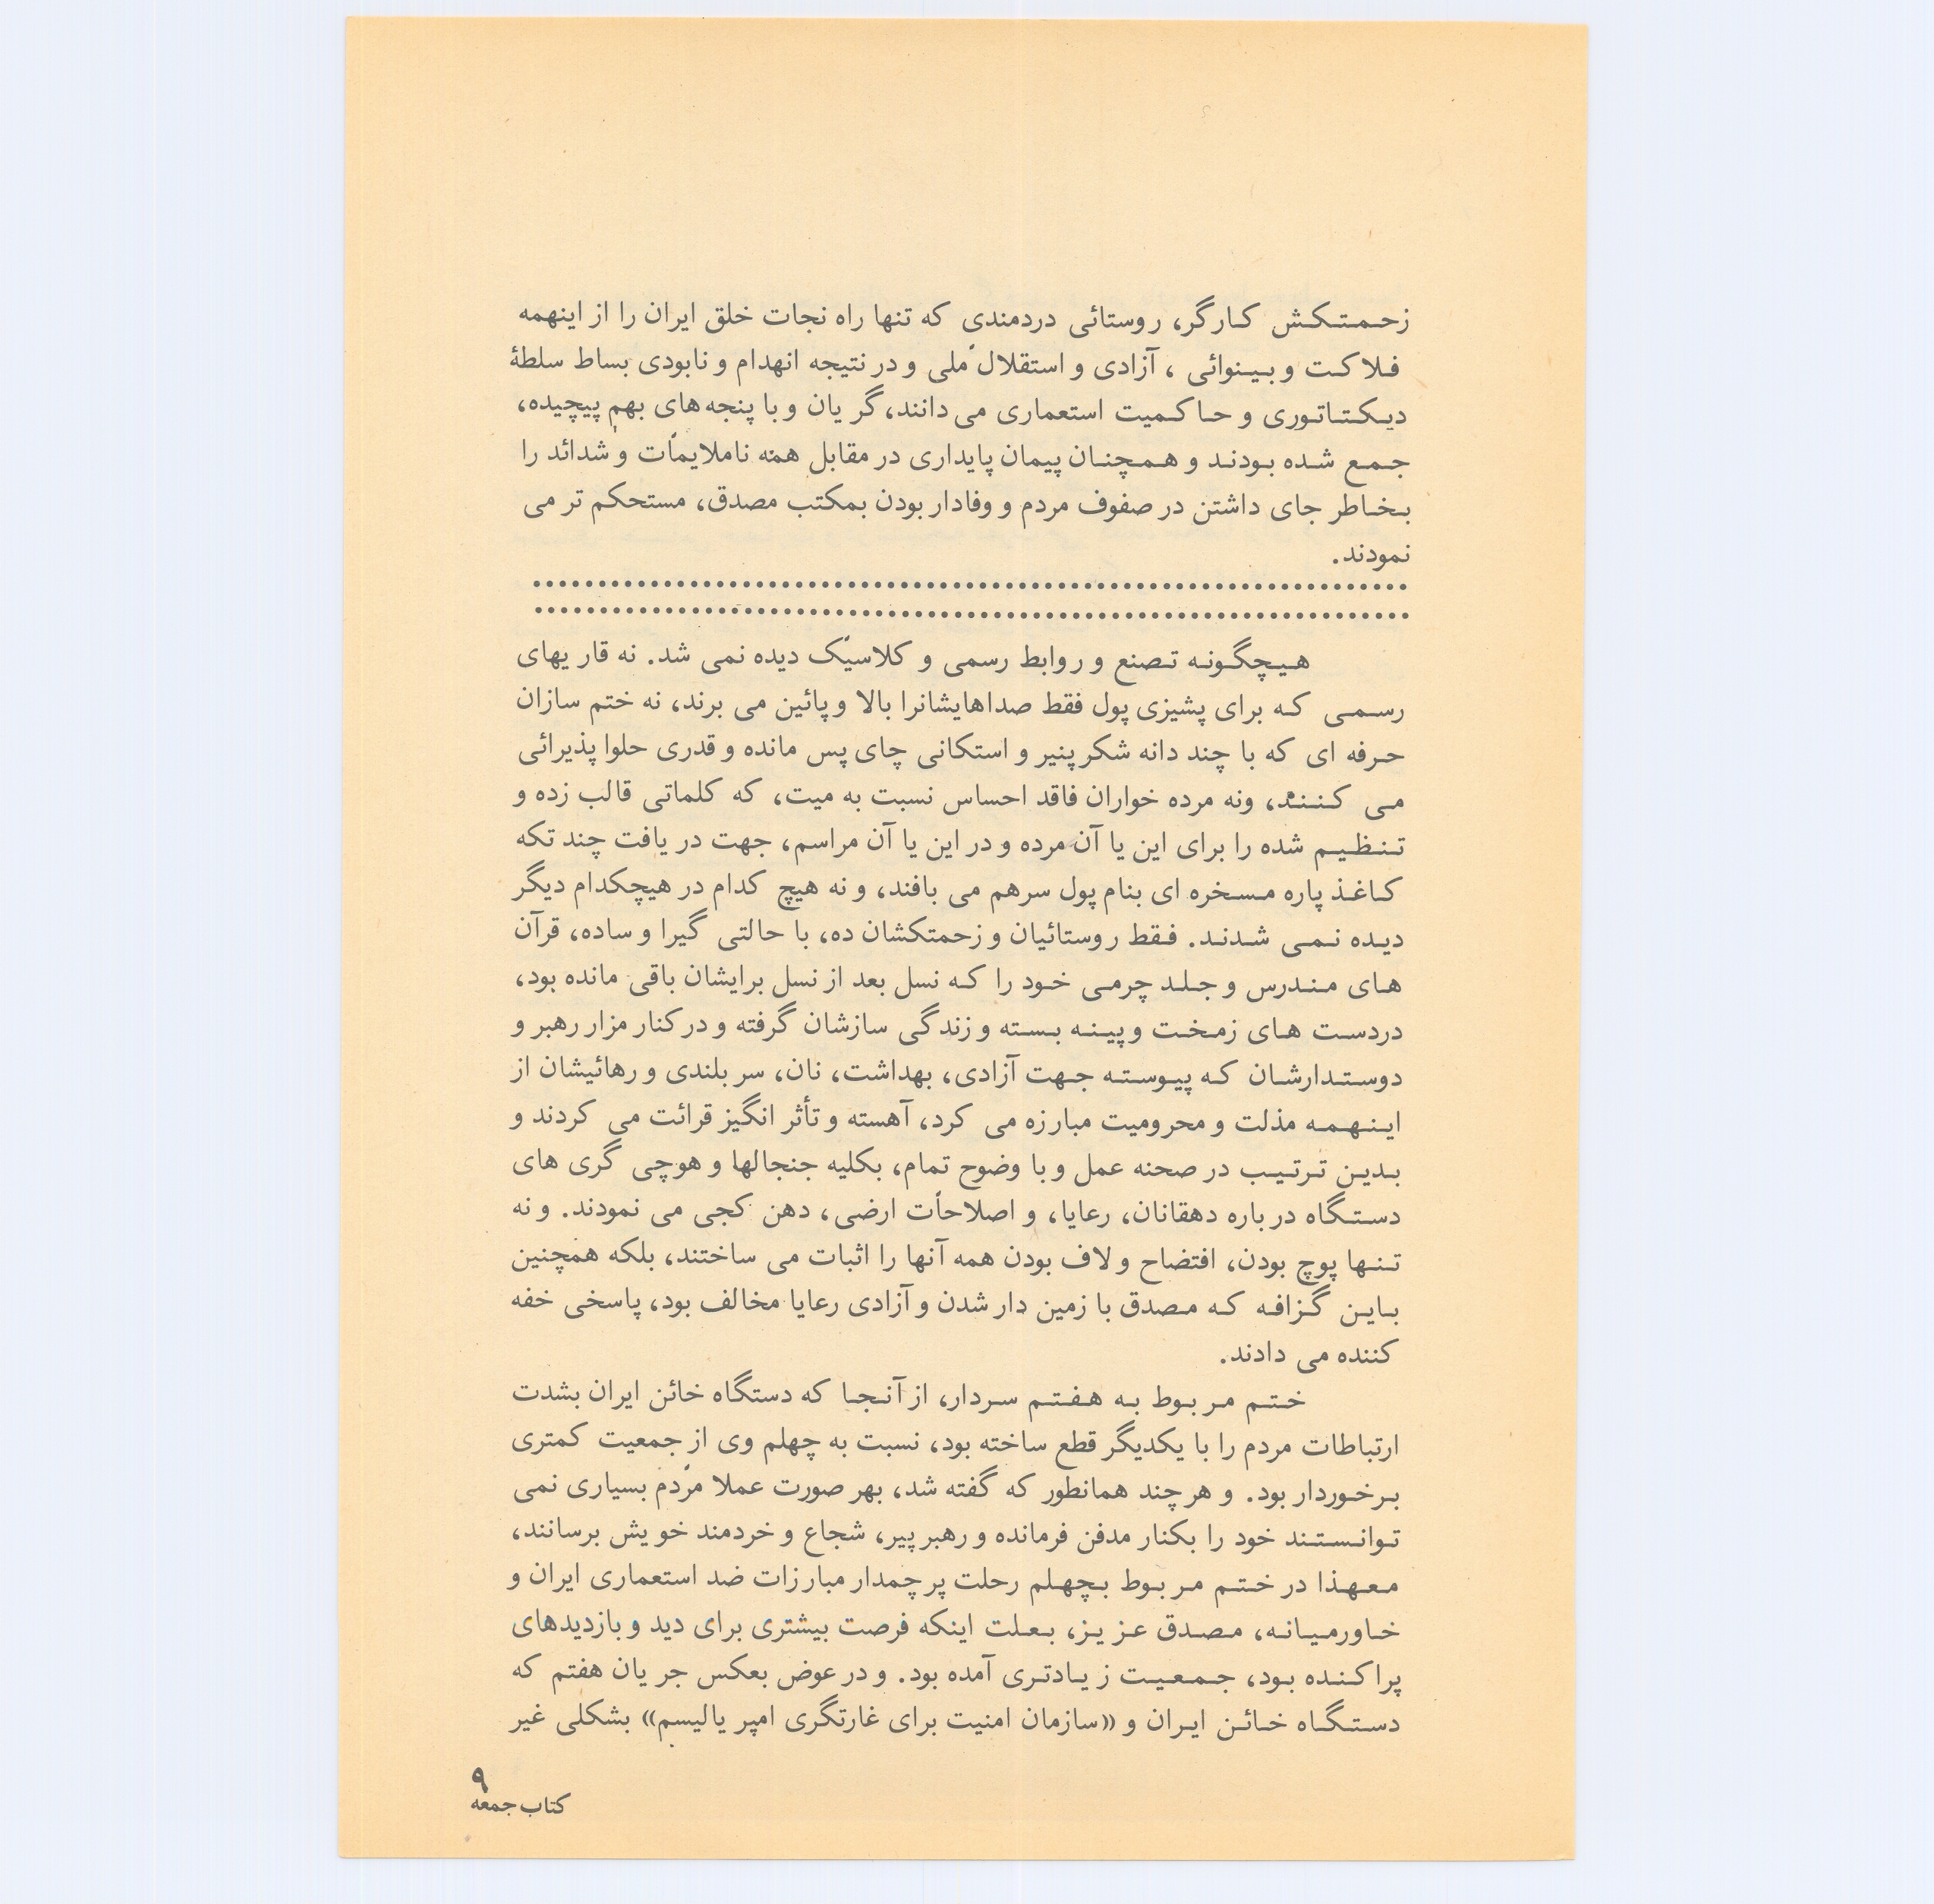 زحمتکش کارگر، روستائی دردمندی که تنها راه نجات خلق ایران را از اینهمه
فلاکت و بینوائی ، آزادی و استقلال ملی و در نتیجه انهدام و نابودی بساط سلطۀ
دیکتاتوری و حاکمیت استعماری می دانند، گریان و با پنجه های بهم پیچیده،
جمع شده بودند و همچنان پیمان پایداری در مقابل همه ناملایمات و شدائد را
بخاطر جای داشتن در صفوف مردم و وفادار بودن بمکتب مصدق، مستحکم تر می
نمودند.
هیچگونه تصنع و روابط رسمی و کلاسیک دیده نمی شد. نه قاریهای
رسمی که برای پشیزی پول فقط صداهایشانرا بالا و پائین می برند، نه ختم سازان
حرفه ای که با چند دانه شکر پنیر و استکانی چای پس مانده و قدری حلوا پذیرائی
می کنند، ونه مرده خواران فاقد احساس نسبت به میت، که کلماتی قالب زده و
تنظیم شده را برای این یا آن مرده و در این یا آن مراسم، جهت دریافت چند تکه
کاغذ پاره مسخره ای بنام پول سرهم می بافند، و نه هیچ کدام در هیچکدام دیگر
دیده نمی شدند. فقط روستائیان و زحمتکشان ده، با حالتی گیرا و ساده، قرآن
های مندرس و جلد چرمی خود را که نسل بعد از نسل برایشان باقی مانده بود،
دردست های زمخت و پینه بسته و زندگی سازشان گرفته و در کنار مزار رهبر و
دوستدارشان که پیوسته جهت آزادی، بهداشت، نان، سربلندی و رهائیشان از
اینهمه مذلت و محرومیت مبارزه می کرد، آهسته و تأثر انگیز قرائت می کردند و
بدین ترتیب در صحنه عمل و با وضوح تمام، بکلیه جنجالها و هوچی گری های
دستگاه درباره دهقانان، رعایا، و اصلاحات ارضی، دهن کجی می نمودند. و نه
تنها پوچ بودن، افتضاح و لاف بودن همه آنها را اثبات می ساختند، بلکه همچنین
باین گزافه که مصدق با زمین دار شدن و آزادی رعایا مخالف بود، پاسخی خفه
کننده می دادند.
ختم مربوط به هفتم سردار، از آنجا که دستگاه خائن ایران بشدت
ارتباطات مردم را با یکدیگر قطع ساخته بود، نسبت به چهلم وی از جمعیت کمتری
برخوردار بود. و هر چند همانطور که گفته شد، بهر صورت عملا مردم بسیاری نمی
توانستند خود را بکنار مدفن فرمانده و رهبر پیر، شجاع و خردمند خویش برسانند،
معهذا در ختم مربوط بچهلم رحلت پرچمدار مبارزات ضد استعماری ایران و
خاورمیانه، مصدق عزیز، بعلت اینکه فرصت بیشتری برای دید و بازدیدهای
پراکنده بود، جمعیت زیادتری آمده بود. و در عوض بعکس جریان هفتم که
دستگاه خائن ایران و «سازمان امنیت برای غارتگری امپریالیسم» بشکلی غیر
۹
کتاب جمعه